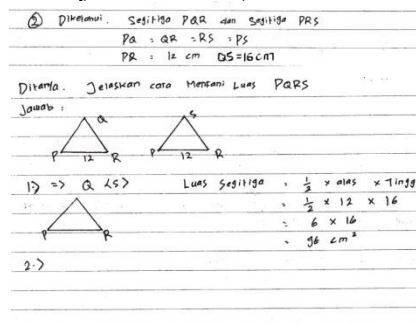 ② Diketahui. Segitiga PQR dan Segitiga PRS
PQ = QR = RS = PS
PR = 12 cm QS = 16 cm
Ditanya. Jelaskan cara Mencari Luas PQRS
Jawab :
Q S
P 12 R P 12 R
1.> => Q <S> Luas Segitiga = 1/2 x alas x Tingg
= 1/2 x 12 x 16
P R = 6 x 16
= 96 cm²
2.>